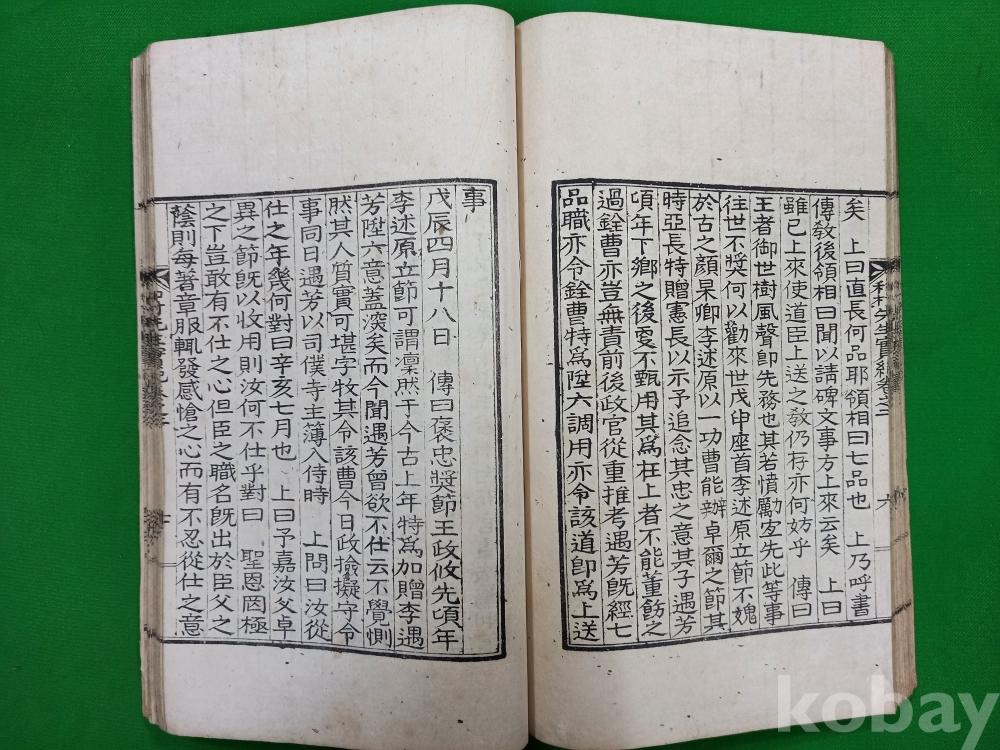 矣　上曰直長何品耶領相曰七品也　上乃呼書
傳敎後領相曰聞以請碑文事方上來云矣　上曰
雖已上來使道臣上送之敎仍存亦何妨乎　傳曰
王者御世樹風聲卽先務也其若憤勵宜先此等事
往世不獎何以勸來世戊申座首李述原立節不媿
於古之顔杲卿李述原以一功曹能辦卓爾之節其
時亞長特贈憲長以示予追念其忠之意其子遇芳
頃年下鄕之後更不甄用其爲在上者不能董飭之
過銓曹亦豈無責前後政官從重推考遇芳旣經七
品職亦令銓曹特爲陞六調用亦令該道卽爲上送
事
戊辰四月十八日　傳曰褒忠獎節王政攸先頃年
李述原立節可謂凜然于今古上年特爲加贈李遇
芳陞六意蓋深矣而今聞遇芳曾欲不仕云不覺惻
然其人質實可堪字牧其令該曹今日政撿擬守令
事同日遇芳以司僕寺主簿入侍時　上問曰汝從
仕之年幾何對曰辛亥七月也　上曰予嘉汝父卓
異之節旣以收用則汝何不仕乎對曰　聖恩罔極
之下豈敢有不仕之心但臣之職名旣出於臣父之
蔭則每著章服輒發感愴之心而有不忍從仕之意
先生實紀卷之二
六
kobay